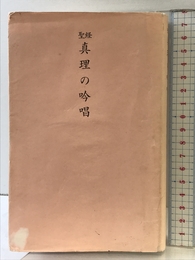 聖経
真理の吟唱